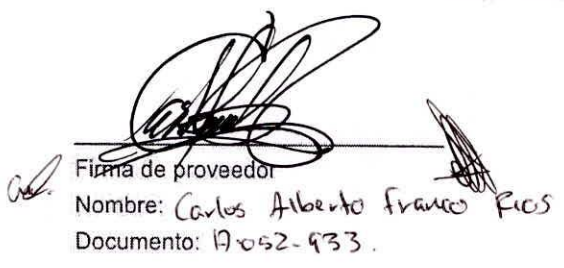 Firma de proveedor
Nombre: Carlos Alberto Franco Rios
Documento: